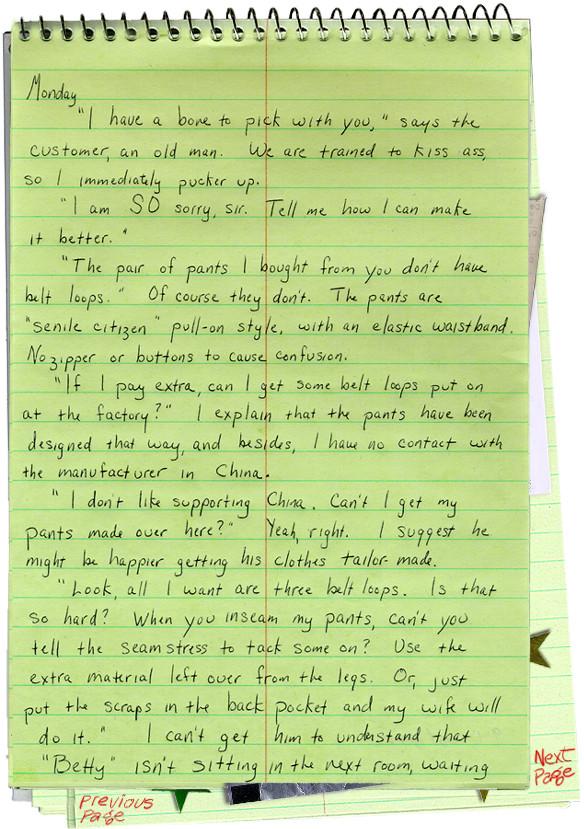 Monday
"I have a bone to pick with you," says the
customer, an old man. We are trained to kiss ass,
so I immediately pucker up.
"I am SO sorry, sir. Tell me how I can make
it better."
"The pair of pants I bought from you don't have
belt loops." Of course they don't. The pants are
"senile citizen" pull-on style, with an elastic waistband.
No zipper or buttons to cause confusion.
"If I pay extra, can I get some belt loops put on
at the factory?" I explain that the pants have been
designed that way, and besides, I have no contact with
the manufacturer in China.
"I don't like supporting China. Can't I get my
pants made over here?" Yeah, right. I suggest he
might be happier getting his clothes tailor-made.
"Look, all I want are three belt loops. Is that
so hard? When you inseam my pants, can't you
tell the seamstress to tack some on? Use the
extra material left over from the legs. Or, just
put the scraps in the back pocket and my wife will
do it." I can't get him to understand that
"Betty" isn't sitting in the next room, waiting
Next
Page
Previous
Page